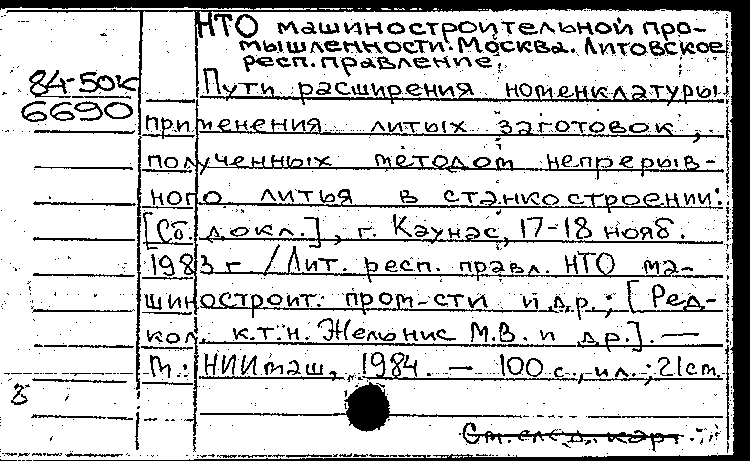 НТО машиностроительной про-
мышленности. Москва. Литовское
респ. правление.
84-50к
6690
Пути расширения номенклатуры
применения литых заготовок,
полученных методом непрерыв-
ного литья в станкостроении:
[Сб. докл.], г. Каунас, 17-18 нояб.
1983 г / Лит. респ. правл. НТО ма-
шиностроит. пром-сти и др.; [Ред-
кол. к.т.н. Жельнис М.В. и др.]. —
М.: НИИмаш, 1984. — 100 с., ил.; 21 см.
См. след. карт.